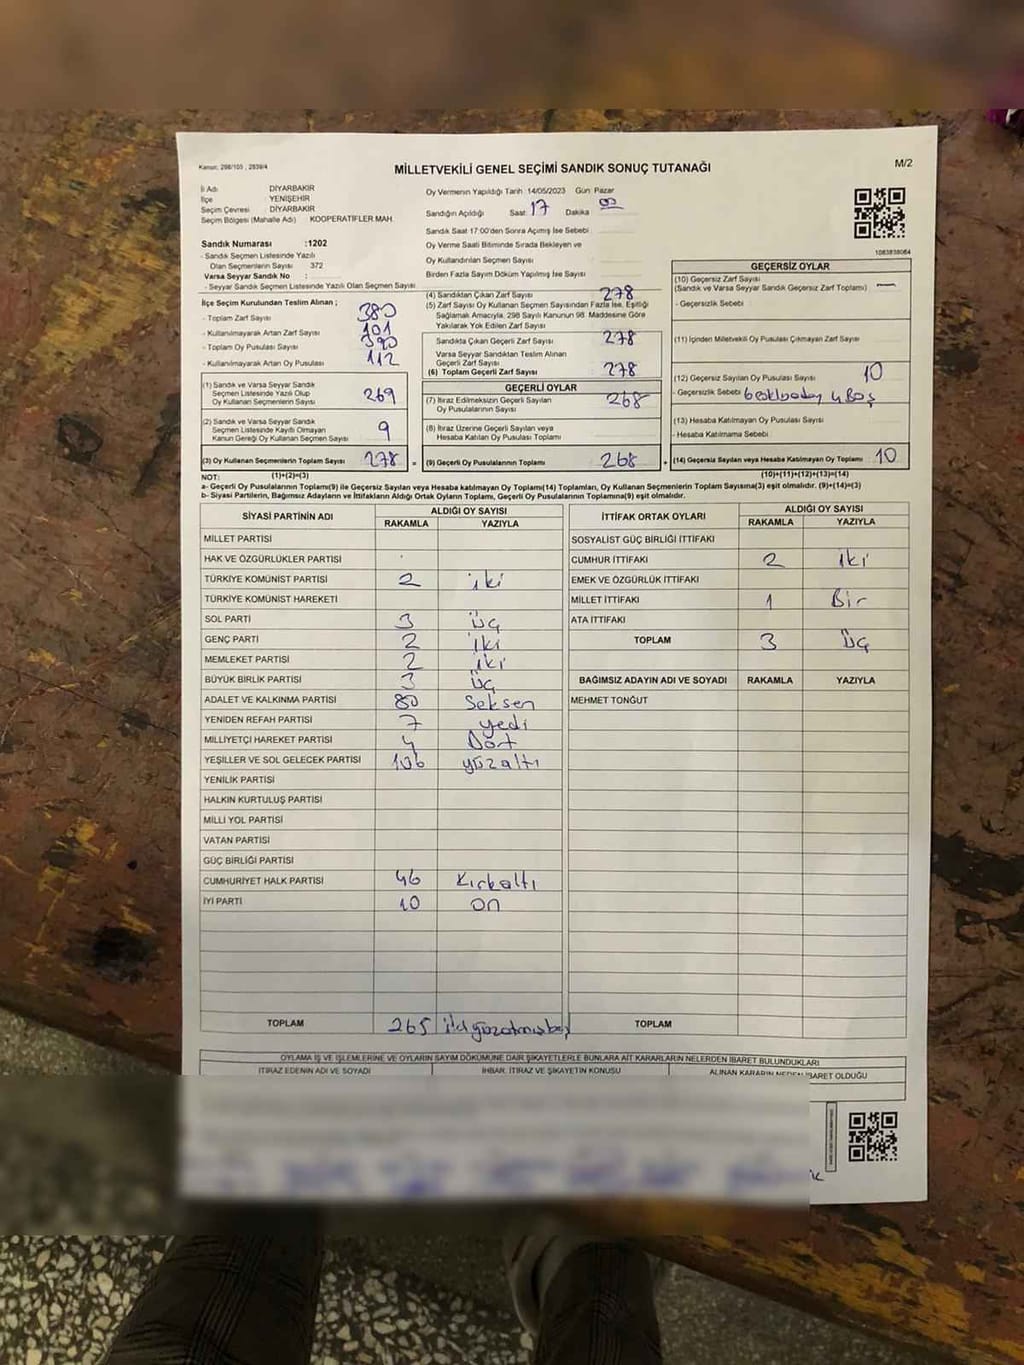 Kanun: 298/105 , 2839/4
MİLLETVEKİLİ GENEL SEÇİMİ SANDIK SONUÇ TUTANAĞI
M/2
İl Adı DİYARBAKIR
İlçe YENİŞEHİR
Seçim Çevresi DİYARBAKIR
Seçim Bölgesi (Mahalle Adı) KOOPERATİFLER MAH.
Sandık Numarası :1202
- Sandık Seçmen Listesinde Yazılı
Olan Seçmenlerin Sayısı 372
Varsa Seyyar Sandık No :
- Seyyar Sandık Seçmen Listesinde Yazılı Olan Seçmen Sayısı
Oy Vermenin Yapıldığı Tarih 14/05/2023 Gün: Pazar
Sandığın Açıldığı Saat: 17 Dakika 00
Sandık Saat 17:00'den Sonra Açılmış İse Sebebi
Oy Verme Saati Bitiminde Sırada Bekleyen ve
Oy Kullandırılan Seçmen Sayısı
Birden Fazla Sayım Döküm Yapılmış İse Sayısı
İlçe Seçim Kurulundan Teslim Alınan ;
- Toplam Zarf Sayısı 380
- Kullanılmayarak Artan Zarf Sayısı 101
- Toplam Oy Pusulası Sayısı 390
- Kullanılmayarak Artan Oy Pusulası 112
(1) Sandık ve Varsa Seyyar Sandık
Seçmen Listesinde Yazılı Olup
Oy Kullanan Seçmenlerin Sayısı 269
(2) Sandık ve Varsa Seyyar Sandık
Seçmen Listesinde Kayıtlı Olmayan
Kanun Gereği Oy Kullanan Seçmen Sayısı 9
(3) Oy Kullanan Seçmenlerin Toplam Sayısı 278
(1)+(2)=(3)
(4) Sandıktan Çıkan Zarf Sayısı 278
(5) Zarf Sayısı Oy Kullanan Seçmen Sayısından Fazla İse, Eşitliği
Sağlamak Amacıyla, 298 Sayılı Kanunun 98. Maddesine Göre
Yakılarak Yok Edilen Zarf Sayısı
Sandıkta Çıkan Geçerli Zarf Sayısı 278
Varsa Seyyar Sandıktan Teslim Alınan
Geçerli Zarf Sayısı
(6) Toplam Geçerli Zarf Sayısı 278
GEÇERLİ OYLAR
(7) İtiraz Edilmeksizin Geçerli Sayılan
Oy Pusulalarının Sayısı 268
(8) İtiraz Üzerine Geçerli Sayılan veya
Hesaba Katılan Oy Pusulası Toplamı
= (9) Geçerli Oy Pusulalarının Toplamı 268
GEÇERSİZ OYLAR
(10) Geçersiz Zarf Sayısı
(Sandık ve Varsa Seyyar Sandık Geçersiz Zarf Toplamı) —
- Geçersizlik Sebebi
(11) İçinden Milletvekili Oy Pusulası Çıkmayan Zarf Sayısı
(12) Geçersiz Sayılan Oy Pusulası Sayısı 10
- Geçersizlik Sebebi 4 Boş
(13) Hesaba Katılmayan Oy Pusulası Sayısı
- Hesaba Katılmama Sebebi
+ (14) Geçersiz Sayılan veya Hesaba Katılmayan Oy Toplamı 10
(10)+(11)+(12)+(13)=(14)
NOT:
a- Geçerli Oy Pusulalarının Toplamı(9) ile Geçersiz Sayılan veya Hesaba katılmayan Oy Toplamı(14) Toplamları, Oy Kullanan Seçmenlerin Toplam Sayısına(3) eşit olmalıdır. (9)+(14)=(3)
b- Siyasi Partilerin, Bağımsız Adayların ve İttifakların Aldığı Ortak Oyların Toplamı, Geçerli Oy Pusulalarının Toplamına(9) eşit olmalıdır.
SİYASİ PARTİNİN ADI ALDIĞI OY SAYISI
RAKAMLA YAZIYLA
MİLLET PARTİSİ
HAK VE ÖZGÜRLÜKLER PARTİSİ
TÜRKİYE KOMÜNİST PARTİSİ 2 iki
TÜRKİYE KOMÜNİST HAREKETİ
SOL PARTİ 3 üç
GENÇ PARTİ 2 iki
MEMLEKET PARTİSİ 2 iki
BÜYÜK BİRLİK PARTİSİ 3 üç
ADALET VE KALKINMA PARTİSİ 80 Seksen
YENİDEN REFAH PARTİSİ 7 yedi
MİLLİYETÇİ HAREKET PARTİSİ 4 Dört
YEŞİLLER VE SOL GELECEK PARTİSİ 106 yüzaltı
YENİLİK PARTİSİ
HALKIN KURTULUŞ PARTİSİ
MİLLİ YOL PARTİSİ
VATAN PARTİSİ
GÜÇ BİRLİĞİ PARTİSİ
CUMHURİYET HALK PARTİSİ 46 Kırkaltı
İYİ PARTİ 10 on
TOPLAM 265 ikiyüzatmışbeş
İTTİFAK ORTAK OYLARI ALDIĞI OY SAYISI
RAKAMLA YAZIYLA
SOSYALİST GÜÇ BİRLİĞİ İTTİFAKI
CUMHUR İTTİFAKI 2 iki
EMEK VE ÖZGÜRLÜK İTTİFAKI
MİLLET İTTİFAKI 1 Bir
ATA İTTİFAKI
TOPLAM 3 üç
BAĞIMSIZ ADAYIN ADI VE SOYADI RAKAMLA YAZIYLA
MEHMET TONĞUT
TOPLAM
OYLAMA İŞ VE İŞLEMLERİNE VE OYLARIN SAYIM DÖKÜMÜNE DAİR ŞİKAYETLERLE BUNLARA AİT KARARLARIN NELERDEN İBARET BULUNDUKLARI
İTİRAZ EDENİN ADI VE SOYADI İHBAR, İTİRAZ VE ŞİKAYETİN KONUSU ALINAN KARARIN NEDEN İBARET OLDUĞU